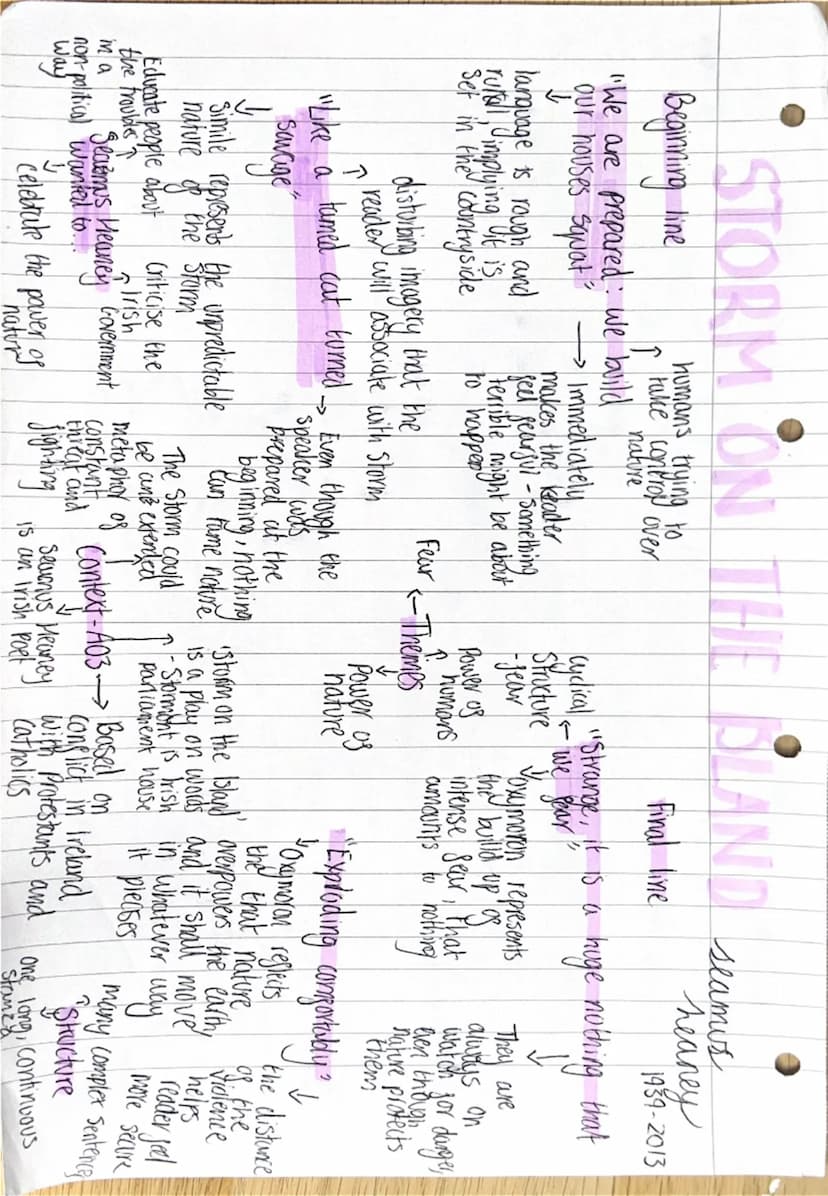 STORM ON THE ISLAND
seamus
heaney
1939-2013
Beginning line
humans trying to
take control over
nature
↑
"We are prepared: we build
our houses squat"
↓
language is rough and
rural, implying it is
set in the countryside
→ Immediately
makes the reader
feel fearful - something
terrible might be about
to happen
Final line
"Strange, it is a huge nothing that
we fear"
← cyclical
structure
- fear
↓
Oxymoron represents
the build up of
intense fear, that
amounts to nothing
↓
They are
always on
watch for danger,
even though
nature protects
them
disturbing imagery that the
reader will associate with storm
↑
"Like a tamed cat turned
savage"
↓
Simile represents the unpredictable
nature of the storm
→ Even though the
speaker was
prepared at the
beginning, nothing
can tame nature
Fear ← Themes
↑
Power of
humans
↓
Power of
nature
"Exploding comfortably"
↓
Oxymoron reflects
the that nature
overpowers the earth,
and it shall move
in whatever way
it pleases
↓
the distance
of the
violence
helps
reader feel
more secure
Educate people about
the troubles
in a
non-political
way
↑
criticise the
Irish
Government
↑
Seamus Heaney
wanted to...
↓
celebrate the power of
nature
The Storm could
be an extended
metaphor of
constant
threat and
fighting
'Storm on the Island'
is a play on words
- Stormont is Irish
parliament house
↑
Context - AO3 → Based on
conflict in Ireland
with Protestants and
Catholics
↓
Seamus Heaney
is an Irish poet
many complex sentences
↑
Structure
↓
one long, continuous
stanza